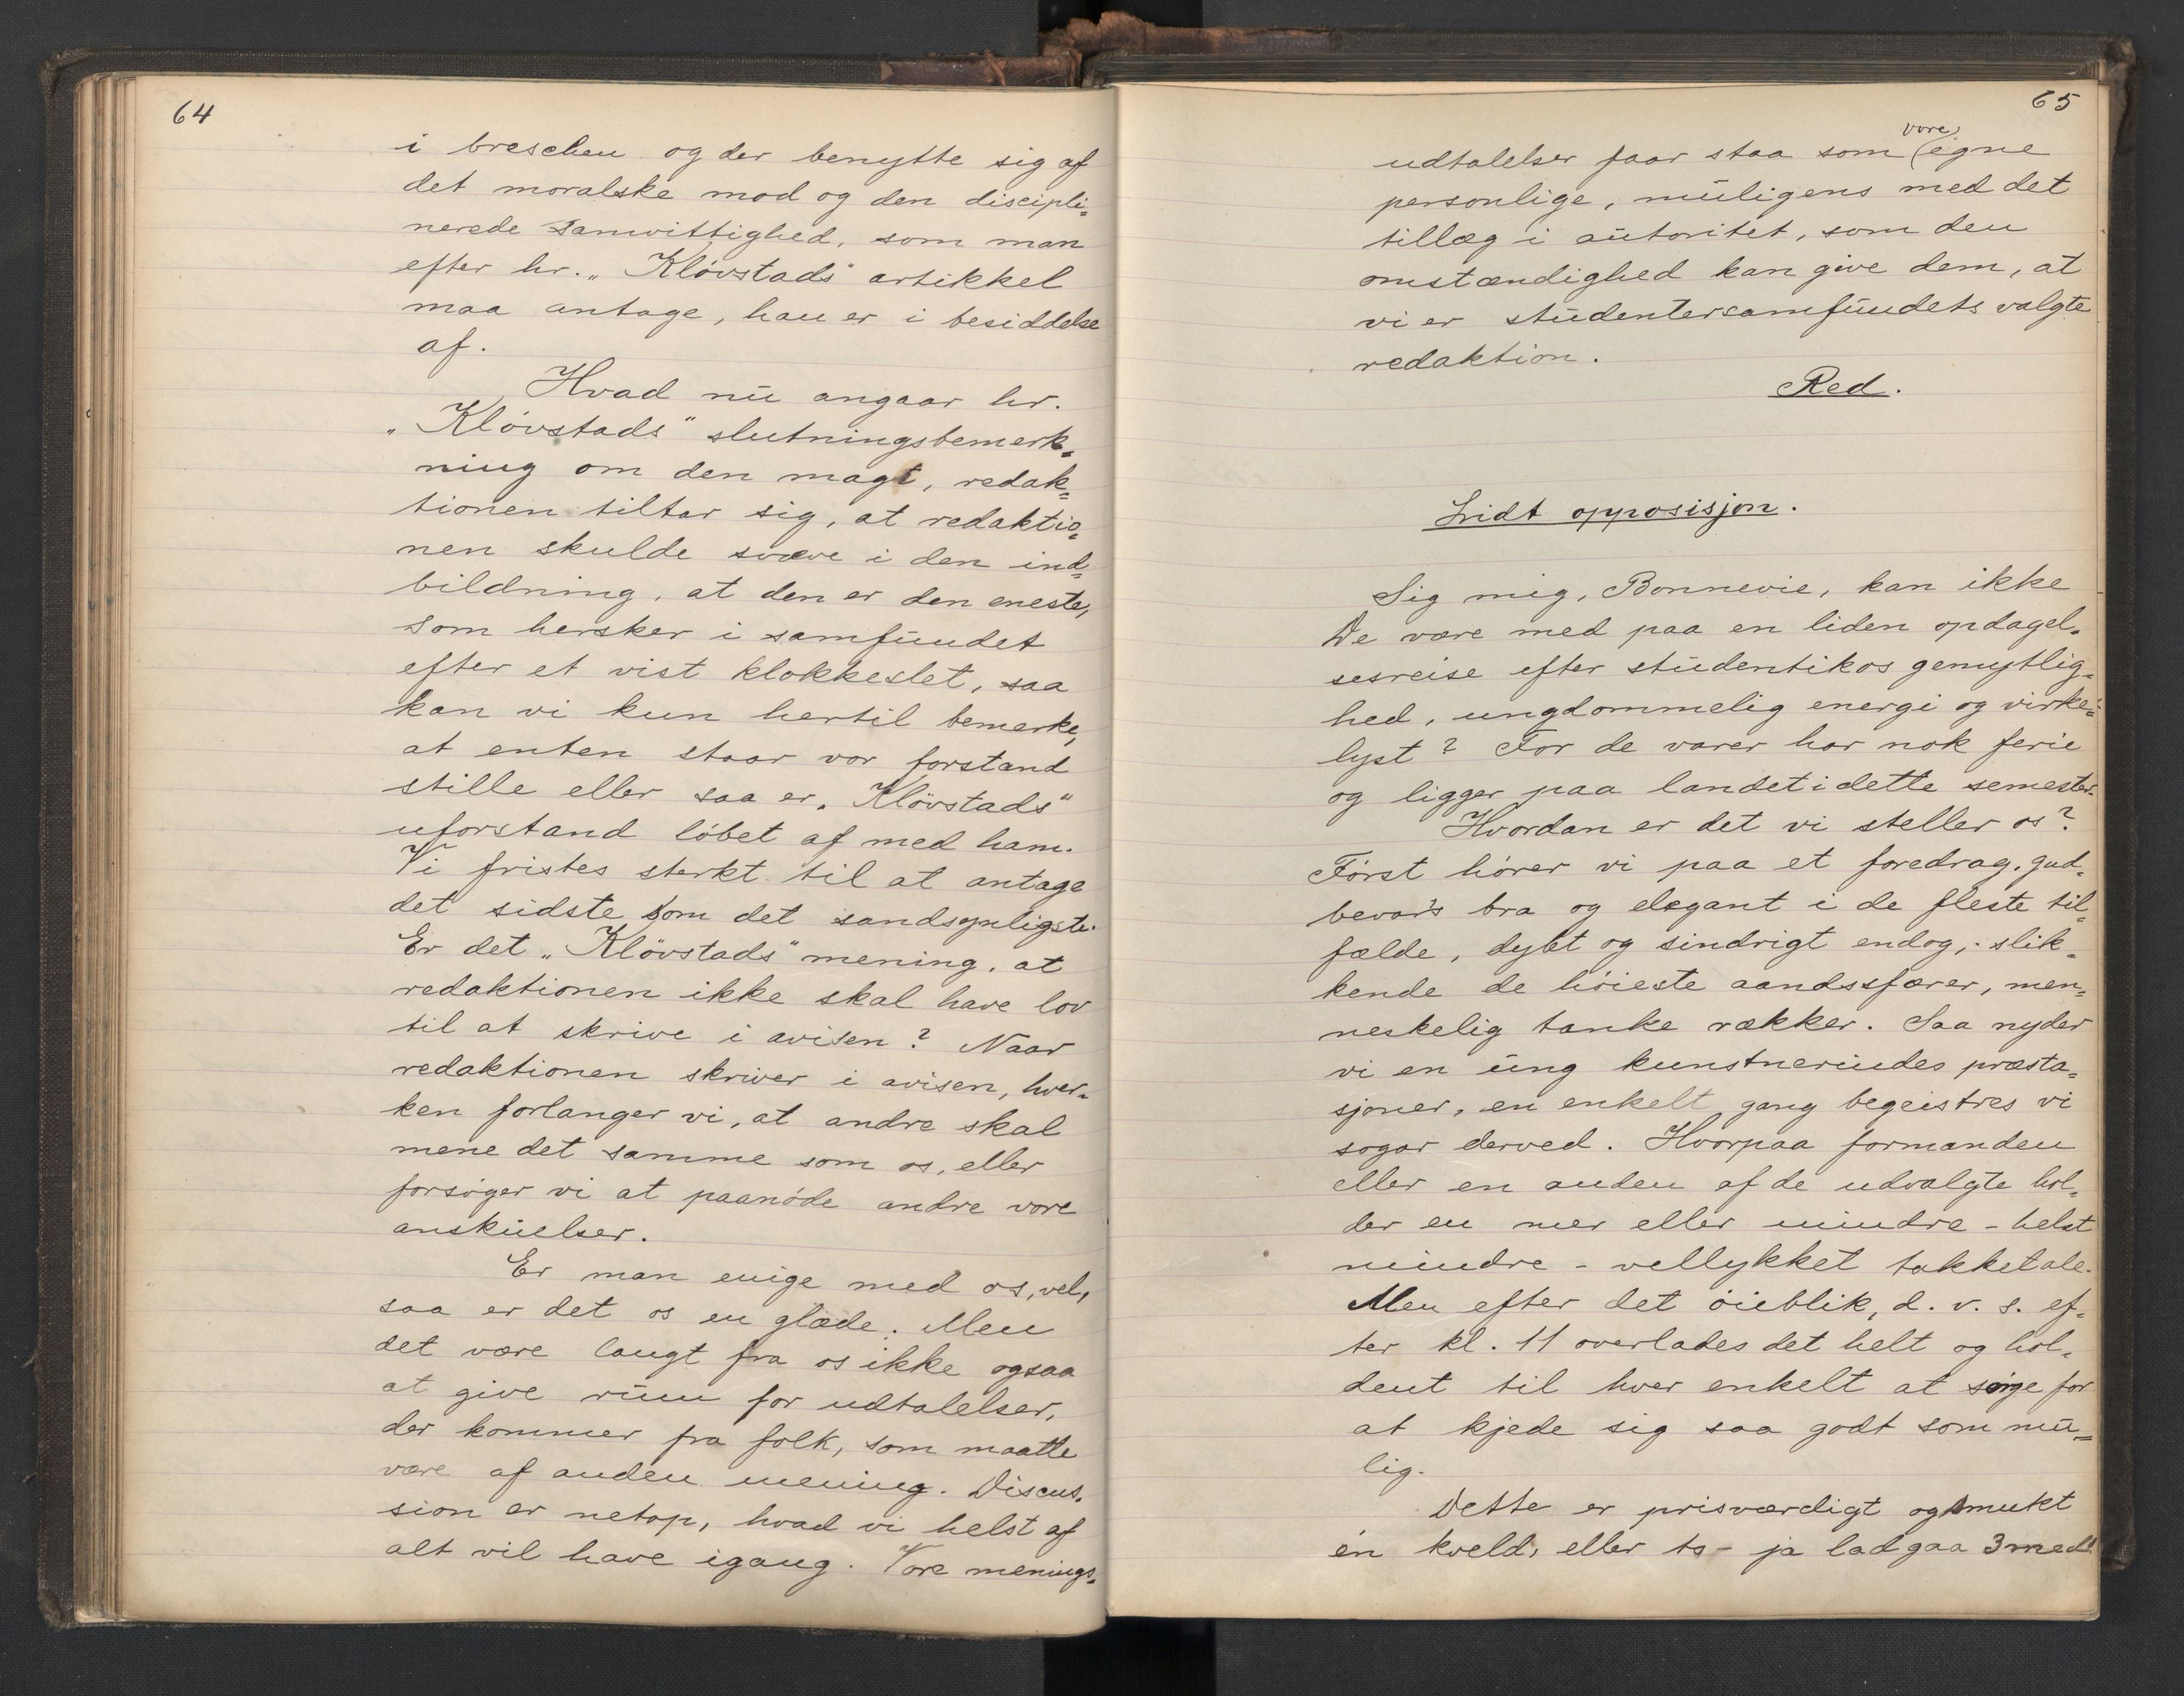 64
i breschen og der benytte sig af
det moralske mod og den discipli=
nerede samvittighed, som man
efter hr. „Kløvstads" artikkel
maa antage, han er i besiddelse
af.
Hvad nu angaar hr.
„Kløvstads" slutningsbemerk=
ning om den magt, redak=
tionen tiltar sig, at redaktio=
nen skulde svæve i den ind=
bildning, at den er den eneste,
som hersker i samfundet
efter et vist klokkeslet, saa
kan vi kun hertil bemerke,
at enten staar vor forstand
stille eller saa er „Kløvstads"
uforstand løbet af med ham.
Vi fristes sterkt til at antage
det sidste som det sandsynligste.
Er det „Kløvstads" mening, at
redaktionen ikke skal have lov
til at skrive i avisen? Naar
redaktionen skriver i avisen, hver=
ken forlanger vi, at andre skal
mene det samme som os, eller
forsøger vi at paanøde andre vore
anskuelser.
Er man enige med os, vel,
saa er det os en glæde. Men
det være langt fra os ikke ogsaa
at give rum for udtalelser,
der kommer fra folk, som maatte
være af anden mening. Discus=
sion er netop, hvad vi helst af
alt vil have igang. Vore menings=
65
udtalelser faar staa som vore egne
personlige, muligens med det
tillæg i autoritet, som den
omstændighed kan give dem, at
vi er studentersamfundets valgte
redaktion.
Red.
Lidt opposisjon.
Sig mig, Bonnevie, kan ikke
De være med paa en liden opdagel=
sesreise efter studentikos gemytlig=
hed, ungdommelig energi og virke=
lyst? For de varer har nok ferie
og ligger paa landet i dette semester.
Hvordan er det vi steller os?
Først hører vi paa et foredrag, gud=
bevar's bra og elegant i de fleste til=
fælde, dybt og sindrigt endog, - slik=
kende de høieste aandssfærer, men=
neskelig tanke rækker. Saa nyder
vi en ung kunstnerindes præsta=
sjoner, en enkelt gang begeistres vi
sogar derved. Hvorpaa formanden
eller en anden af de udvalgte hol=
der en mer eller mindre - helst
mindre - vellykket takketale.
Men efter det øieblik, d. v. s. ef=
ter kl. 11 overlades det helt og hol=
dent til hver enkelt at sørge for
at kjede sig saa godt som mu=
lig.
Dette er prisværdigt og smukt
én kveld, eller to - ja lad gaa 3 med!